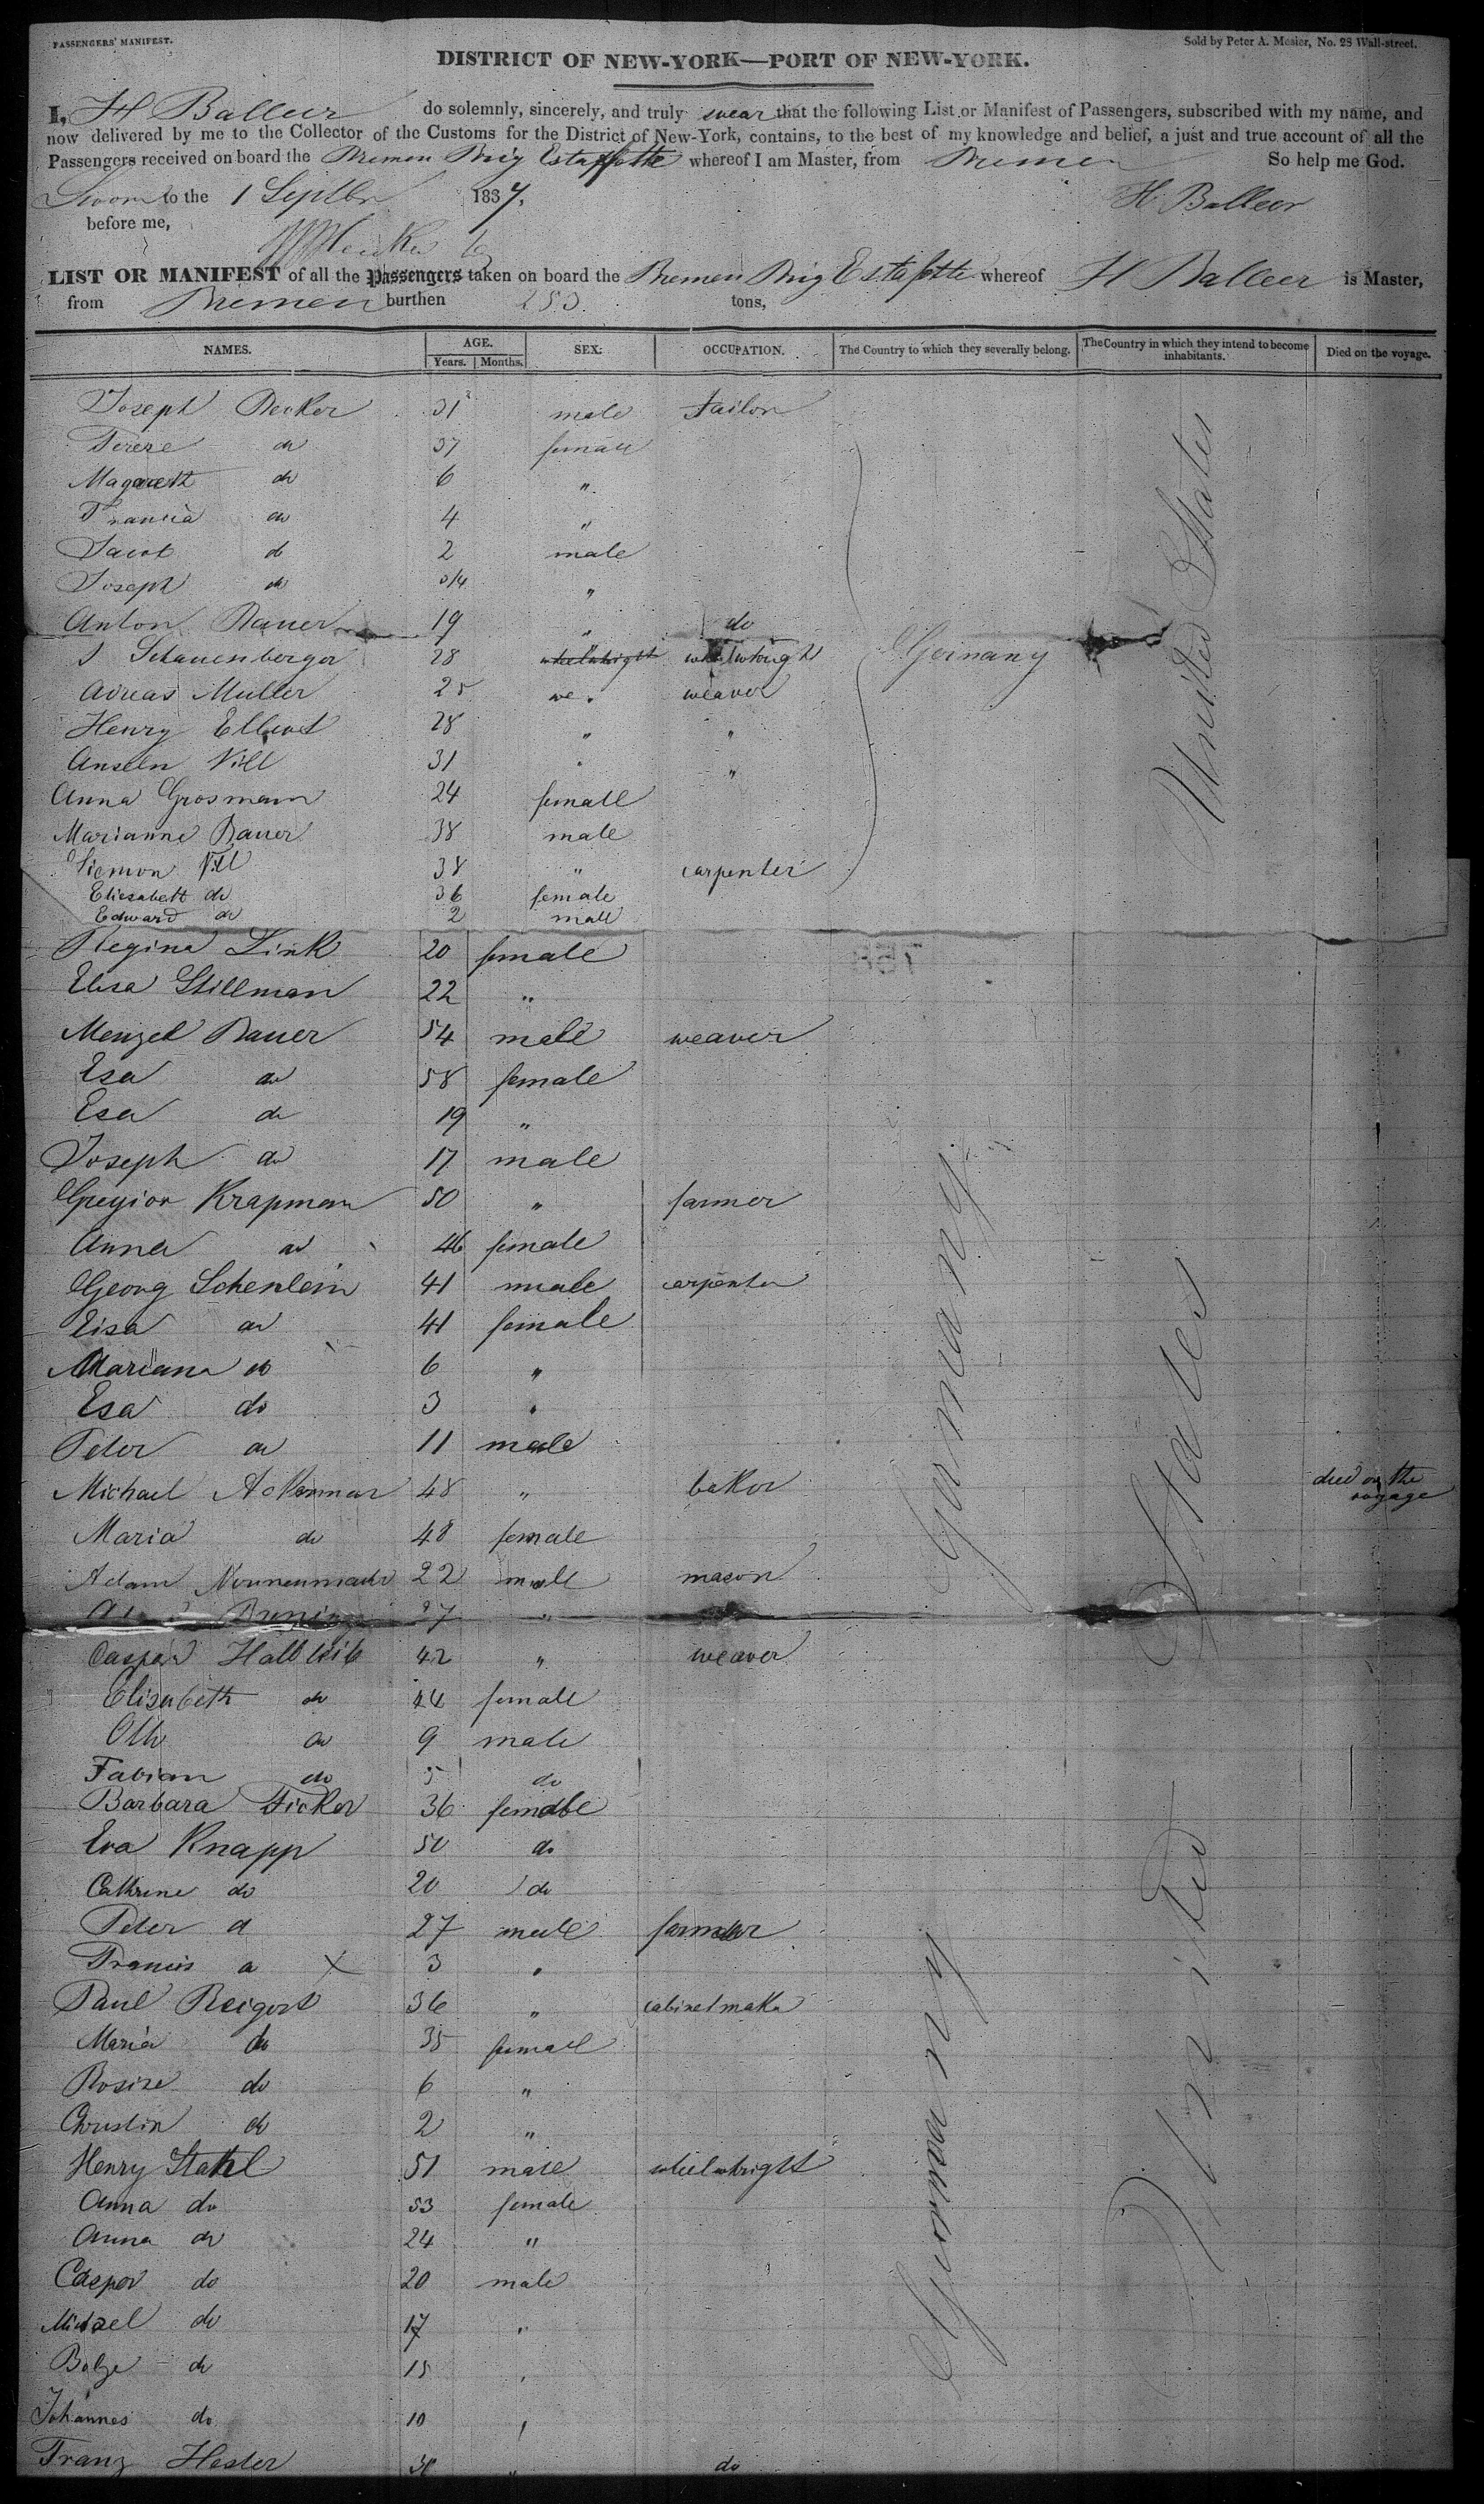 PASSENGERS' MANIFEST.
Sold by Peter A. Mesier, No. 28 Wall-street.
DISTRICT OF NEW-YORK—PORT OF NEW-YORK.
I, H Balleer do solemnly, sincerely, and truly swear that the following List or Manifest of Passengers, subscribed with my name, and
now delivered by me to the Collector of the Customs for the District of New-York, contains, to the best of my knowledge and belief, a just and true account of all the
Passengers received on board the Bremen Brig Estafette whereof I am Master, from Bremen So help me God.
Sworn to the 1 Septbr 1837. H Balleer
before me,
LIST OR MANIFEST of all the Passengers taken on board the Bremen Brig Estafette whereof H Balleer is Master,
from Bremen burthen 253 tons,
NAMES. AGE. Years. Months. SEX. OCCUPATION. The Country to which they severally belong. The Country in which they intend to become inhabitants. Died on the voyage.
Joseph Becker 31 male tailor
Terese do 37 female
Magareth do 6 "
do 4 "
Jacob do 2 male
Joseph do 3/4 "
Anton Bauer 19 " do
J Schauenberger 28 " wheelwhright Germany United States
Muller 25 " weaver
Henry 28 " "
Anseln Vill 31 " "
Anna Grosmann 24 female
Marianne Bauer 38 male
Siemon Vill 38 " carpenter
Eliesabett do 36 female
Edward do 2 male
Regina Link 20 female
Elisa Stillman 22 "
Menzel Bauer 54 male weaver
Esa do 58 female
Esa do 19 "
Joseph do 17 male
Gregior Krapman 50 " farmer
Anna do 46 female
Georg Schenlein 41 male carpenter
Eisa do 41 female
Mariana do 6 "
Esa do 3 "
Peter do 11 male
Michael Ackermar 48 " baker died on the voyage
Maria do 48 female
Adam Nonnenmacher 22 male mason
Bruning 27 "
Caspar Halbleib 42 " weaver
Elisabeth do 44 female
Otto do 9 male
Fabian do 5 do
Barbara Ficker 36 female
Eva Knapp 50 do
Cathrine do 20 do
Peter d 27 male farmer
Francis do X 3 "
Paul Reigert 36 " cabinetmaker
Maria do 35 female
Rosine do 6 "
Christin do 2 "
Henry Stahl 51 male wheelwhright
Anna do 53 female
Anna do 24 "
Casper do 20 male
do 17 "
Balze do 15 "
Johannes do 10 "
Franz Hester 30 " do
Germany
Germany
United States